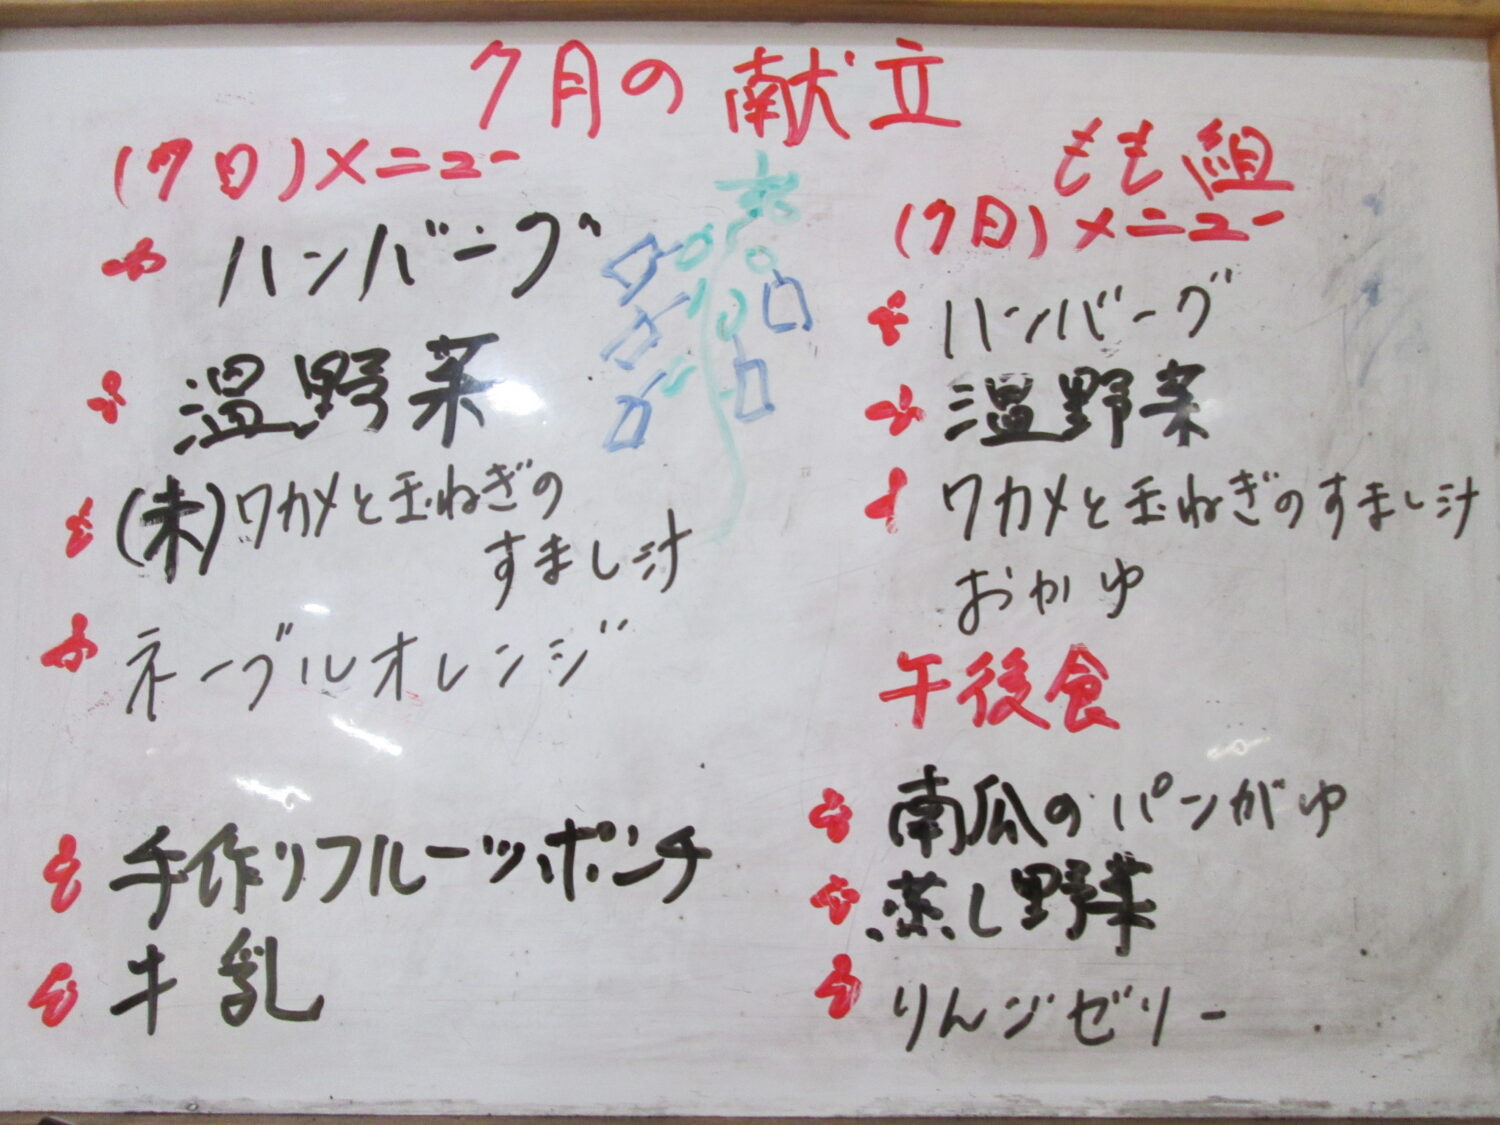 7月の献立
(7日)メニュー
ハンバーグ
温野菜
(未)ワカメと玉ねぎの
すまし汁
ネーブルオレンジ
手作りフルーツポンチ
牛乳
もも組
(7日)メニュー
ハンバーグ
温野菜
ワカメと玉ねぎのすまし汁
おかゆ
午後食
南瓜のパンがゆ
蒸し野菜
りんごゼリー